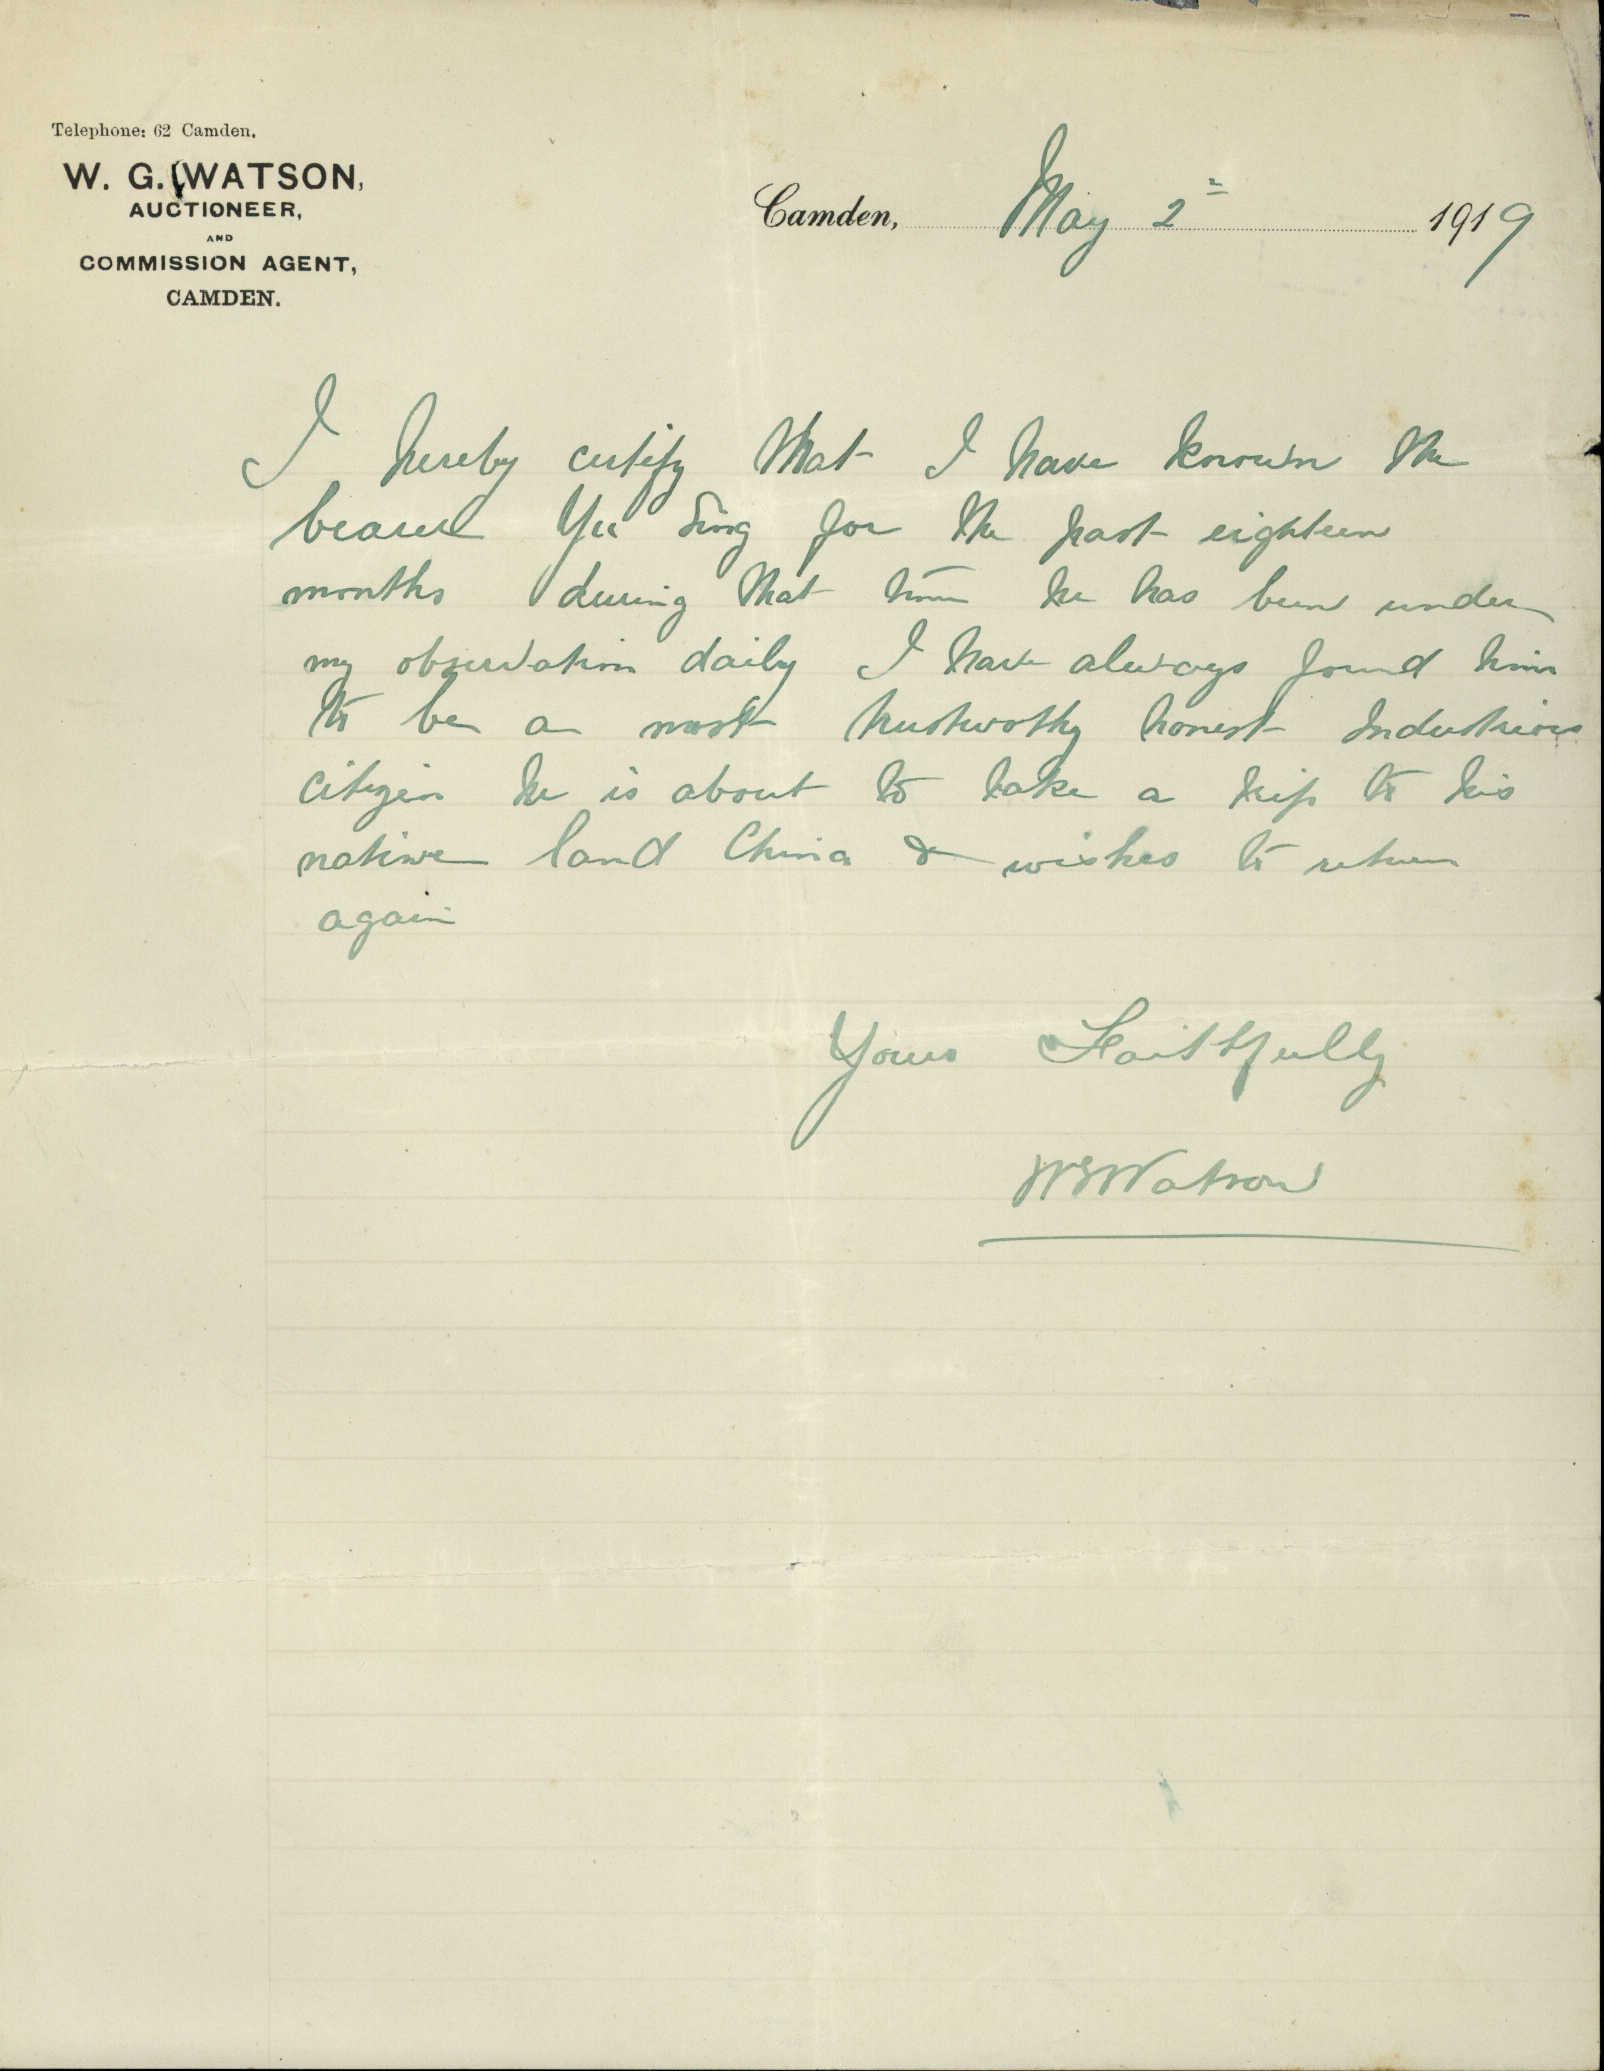 Telephone: 62 Camden.
W. G. WATSON,
AUCTIONEER,
AND
COMMISSION AGENT,
CAMDEN.
Camden, May 2 1919
I hereby certify that I have known the
bearer Yee Sing for the past eighteen
months during that time he has been under
my observation daily I have always found him
to be a most trustworthy honest Industrious
citizen he is about to take a trip to his
native land China & wishes to return
again
Yours Faithfully
WGWatson